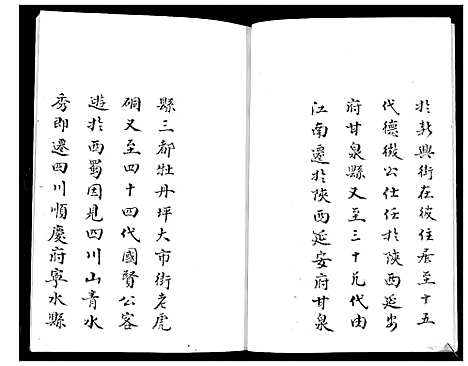 於新興街在彼住居至十五
代德微公仕任於陝西延安
府甘泉縣又至三十九代由
江南遷於陝西延安府甘泉
縣三都牡丹坪大市街老虎
硐又至四十四代國賢公客
遊於西蜀因見四川山青水
秀即遷四川順慶府寧水縣